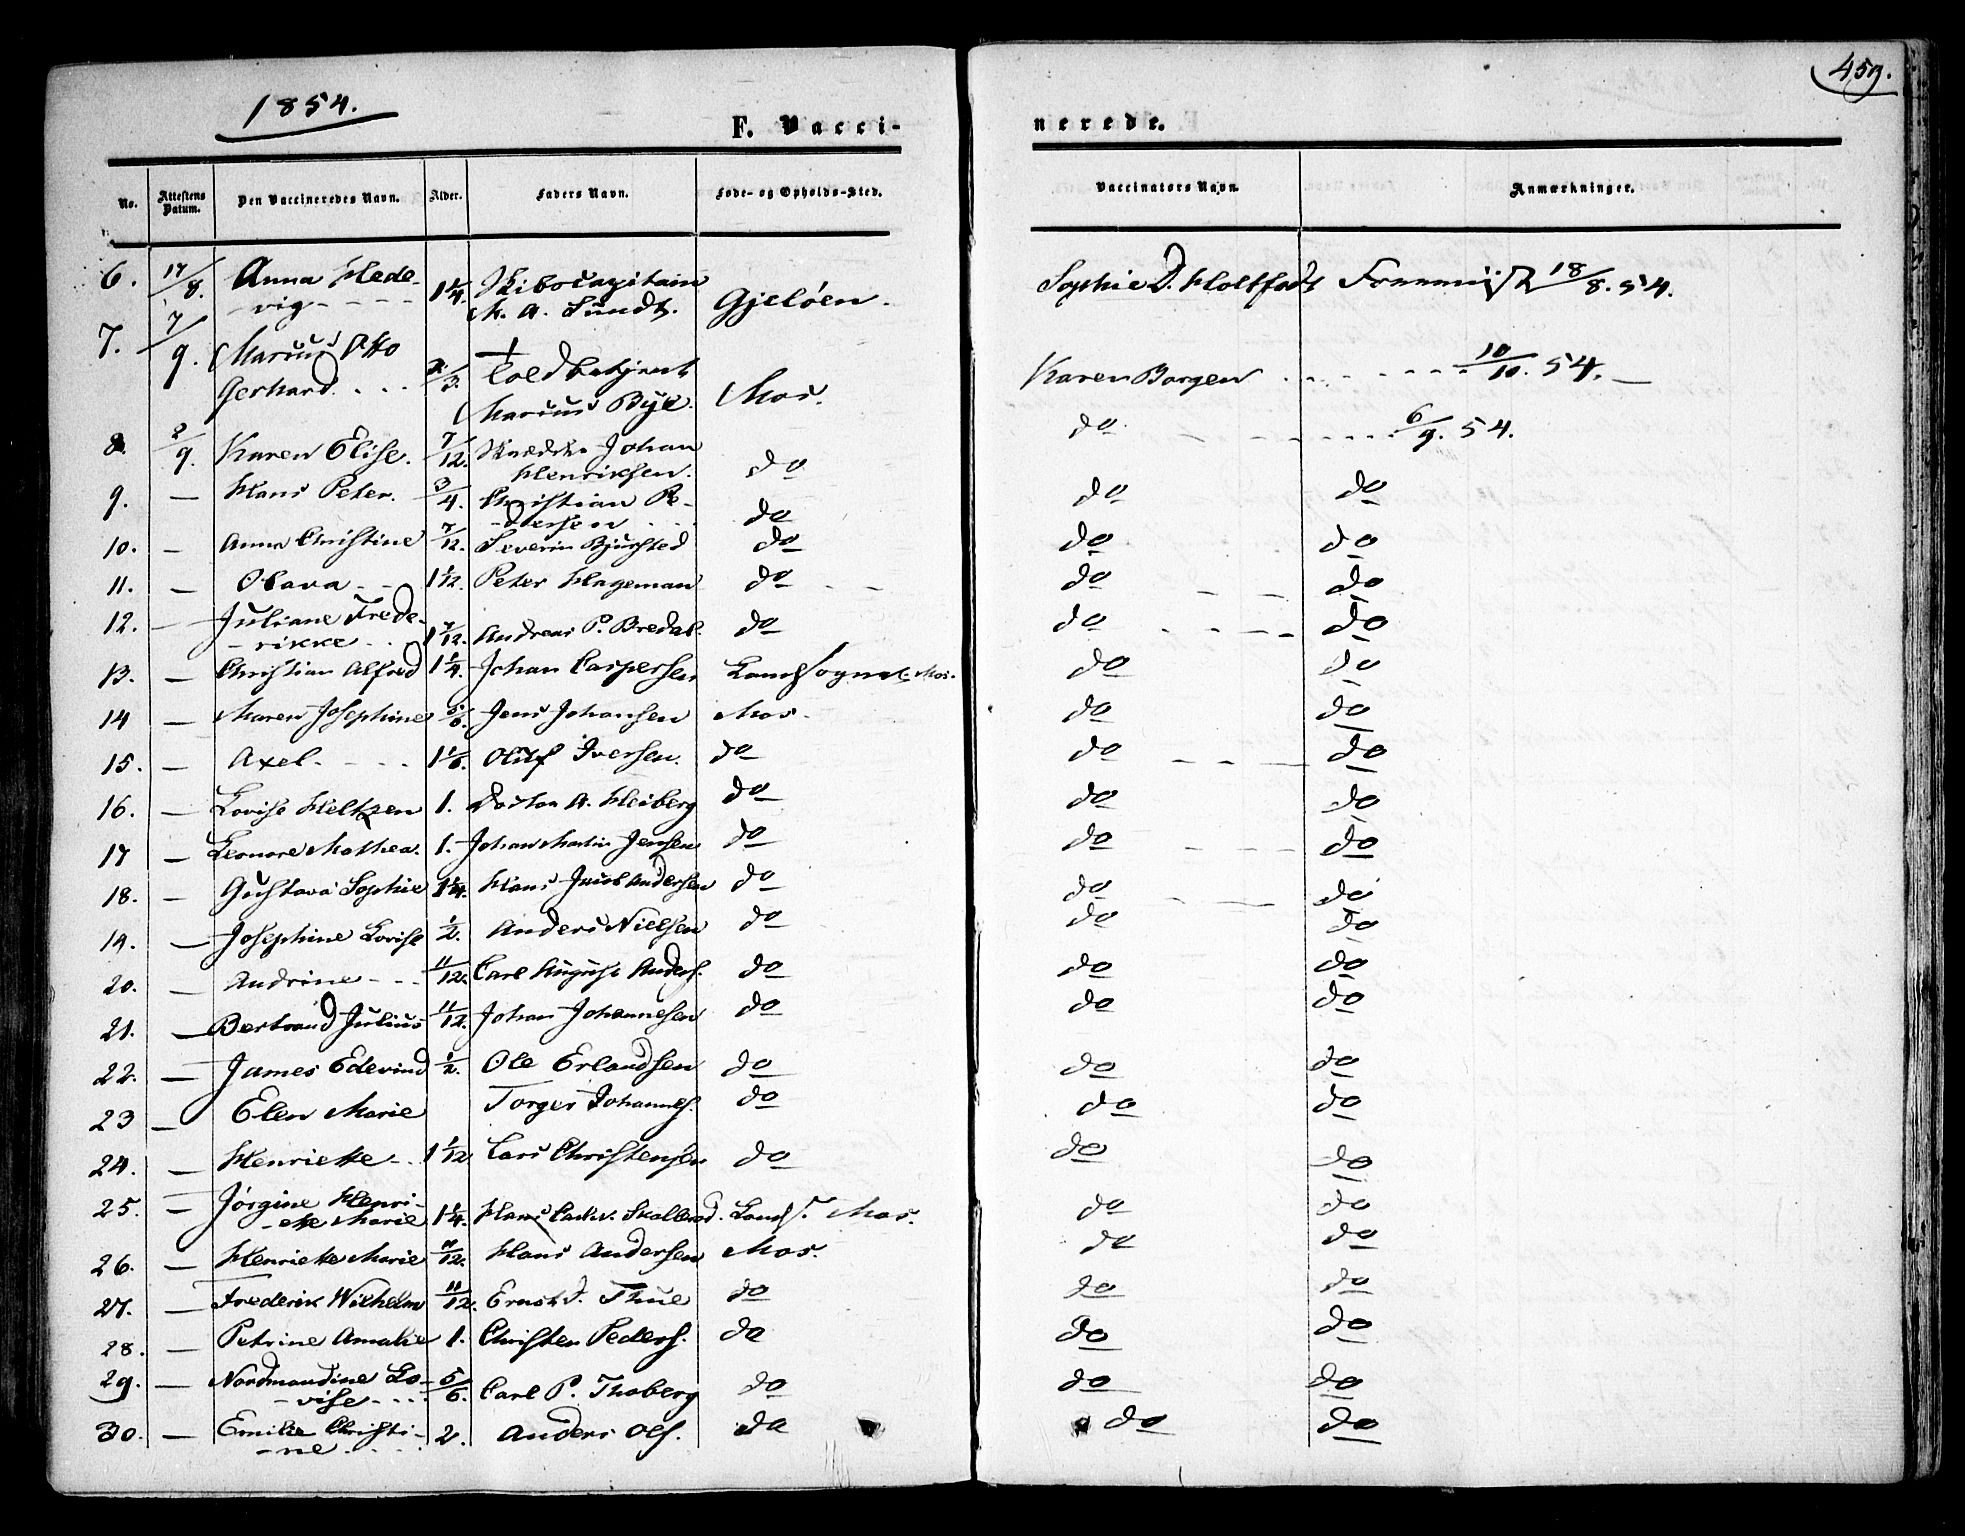 1854.
459.
F. Vacci-
nerede.
No. Attestens Datum. Den Vaccineredes Navn. Alder. Faders Navn. Føde- og Opholds-Sted. Vaccinators Navn. Anmærkninger.
6. 17/8. Anna Hede- 1 1/4. Skibscapitain Gjelöen. Sophie D. Holtfodt 18/8. 54.
- vig - - - - M. A. Lundt.
7. 7/9. Marius Otto 2/3. † Toldbetjent Mos. Karen Borgen 10/10. 54.
Gerhard. - - - Marius Bye.
8. 2/9. Karen Elise. 7/12. Johan do do 6/9. 54.
Henriksen.
9. - Hans Peter. 3/4. Christian Pe- do do do
-dersen
10. - Anna Christine 7/12. Severin Bjursted do do do
11. - Olava - - 1 1/12. Peter Hageman do do do
12. - Juliane Frede- 1 7/12. Andreas P. Bredal. do do do
- rikke - -
13. - Christian Alfred 1 1/4. Johan Caspersen Landsognet Mos. do do
14 - Maren Josephine 5/6. Jens Johansen Mos. do do
15. - Axel. - - - 1 1/6. Oluf Iversen. do do do
16. - Lovise Heltzen 1. Doctor A. Heiberg do do do
17 - Leonore Mathea. 1. Johan Martin Jensen do do do
18. - Gustava Sophie 1 1/4. Hans Jacob Andersen do do do
19. - Josephine Lovise 1/2. Anders Nielsen do do do
20. - Andrine - - - 11/12. Carl August Anders. do do do
21. - Bertrand Julius 11/12. Johan Johannesen do do do
22. - James Edevind 1/2. Ole Erlandsen do do do
23 - Elen Marie Torger Johannes. do do do
24. - Henriette - . 1 1/12 Lars Christensen do do do
25. - Jørgine Henri- 1 1/4. Hans Skallerud. Lands. Mos. do do
- ette Marie
26. - Henriette Marie 7/12. Hans Andersen Mos. do do
27. - Frederik Wilhelm 11/12. Ernst J. Thue do do do
28. - Petrine Amalie 1. Christen Peders. do do do
29. - Nordmandine Lo- 5/6. Carl P. Thoberg do do do
- vise - - -
30. - Emilie Christi- 2. Anders Ols. do do do
- ne - - -